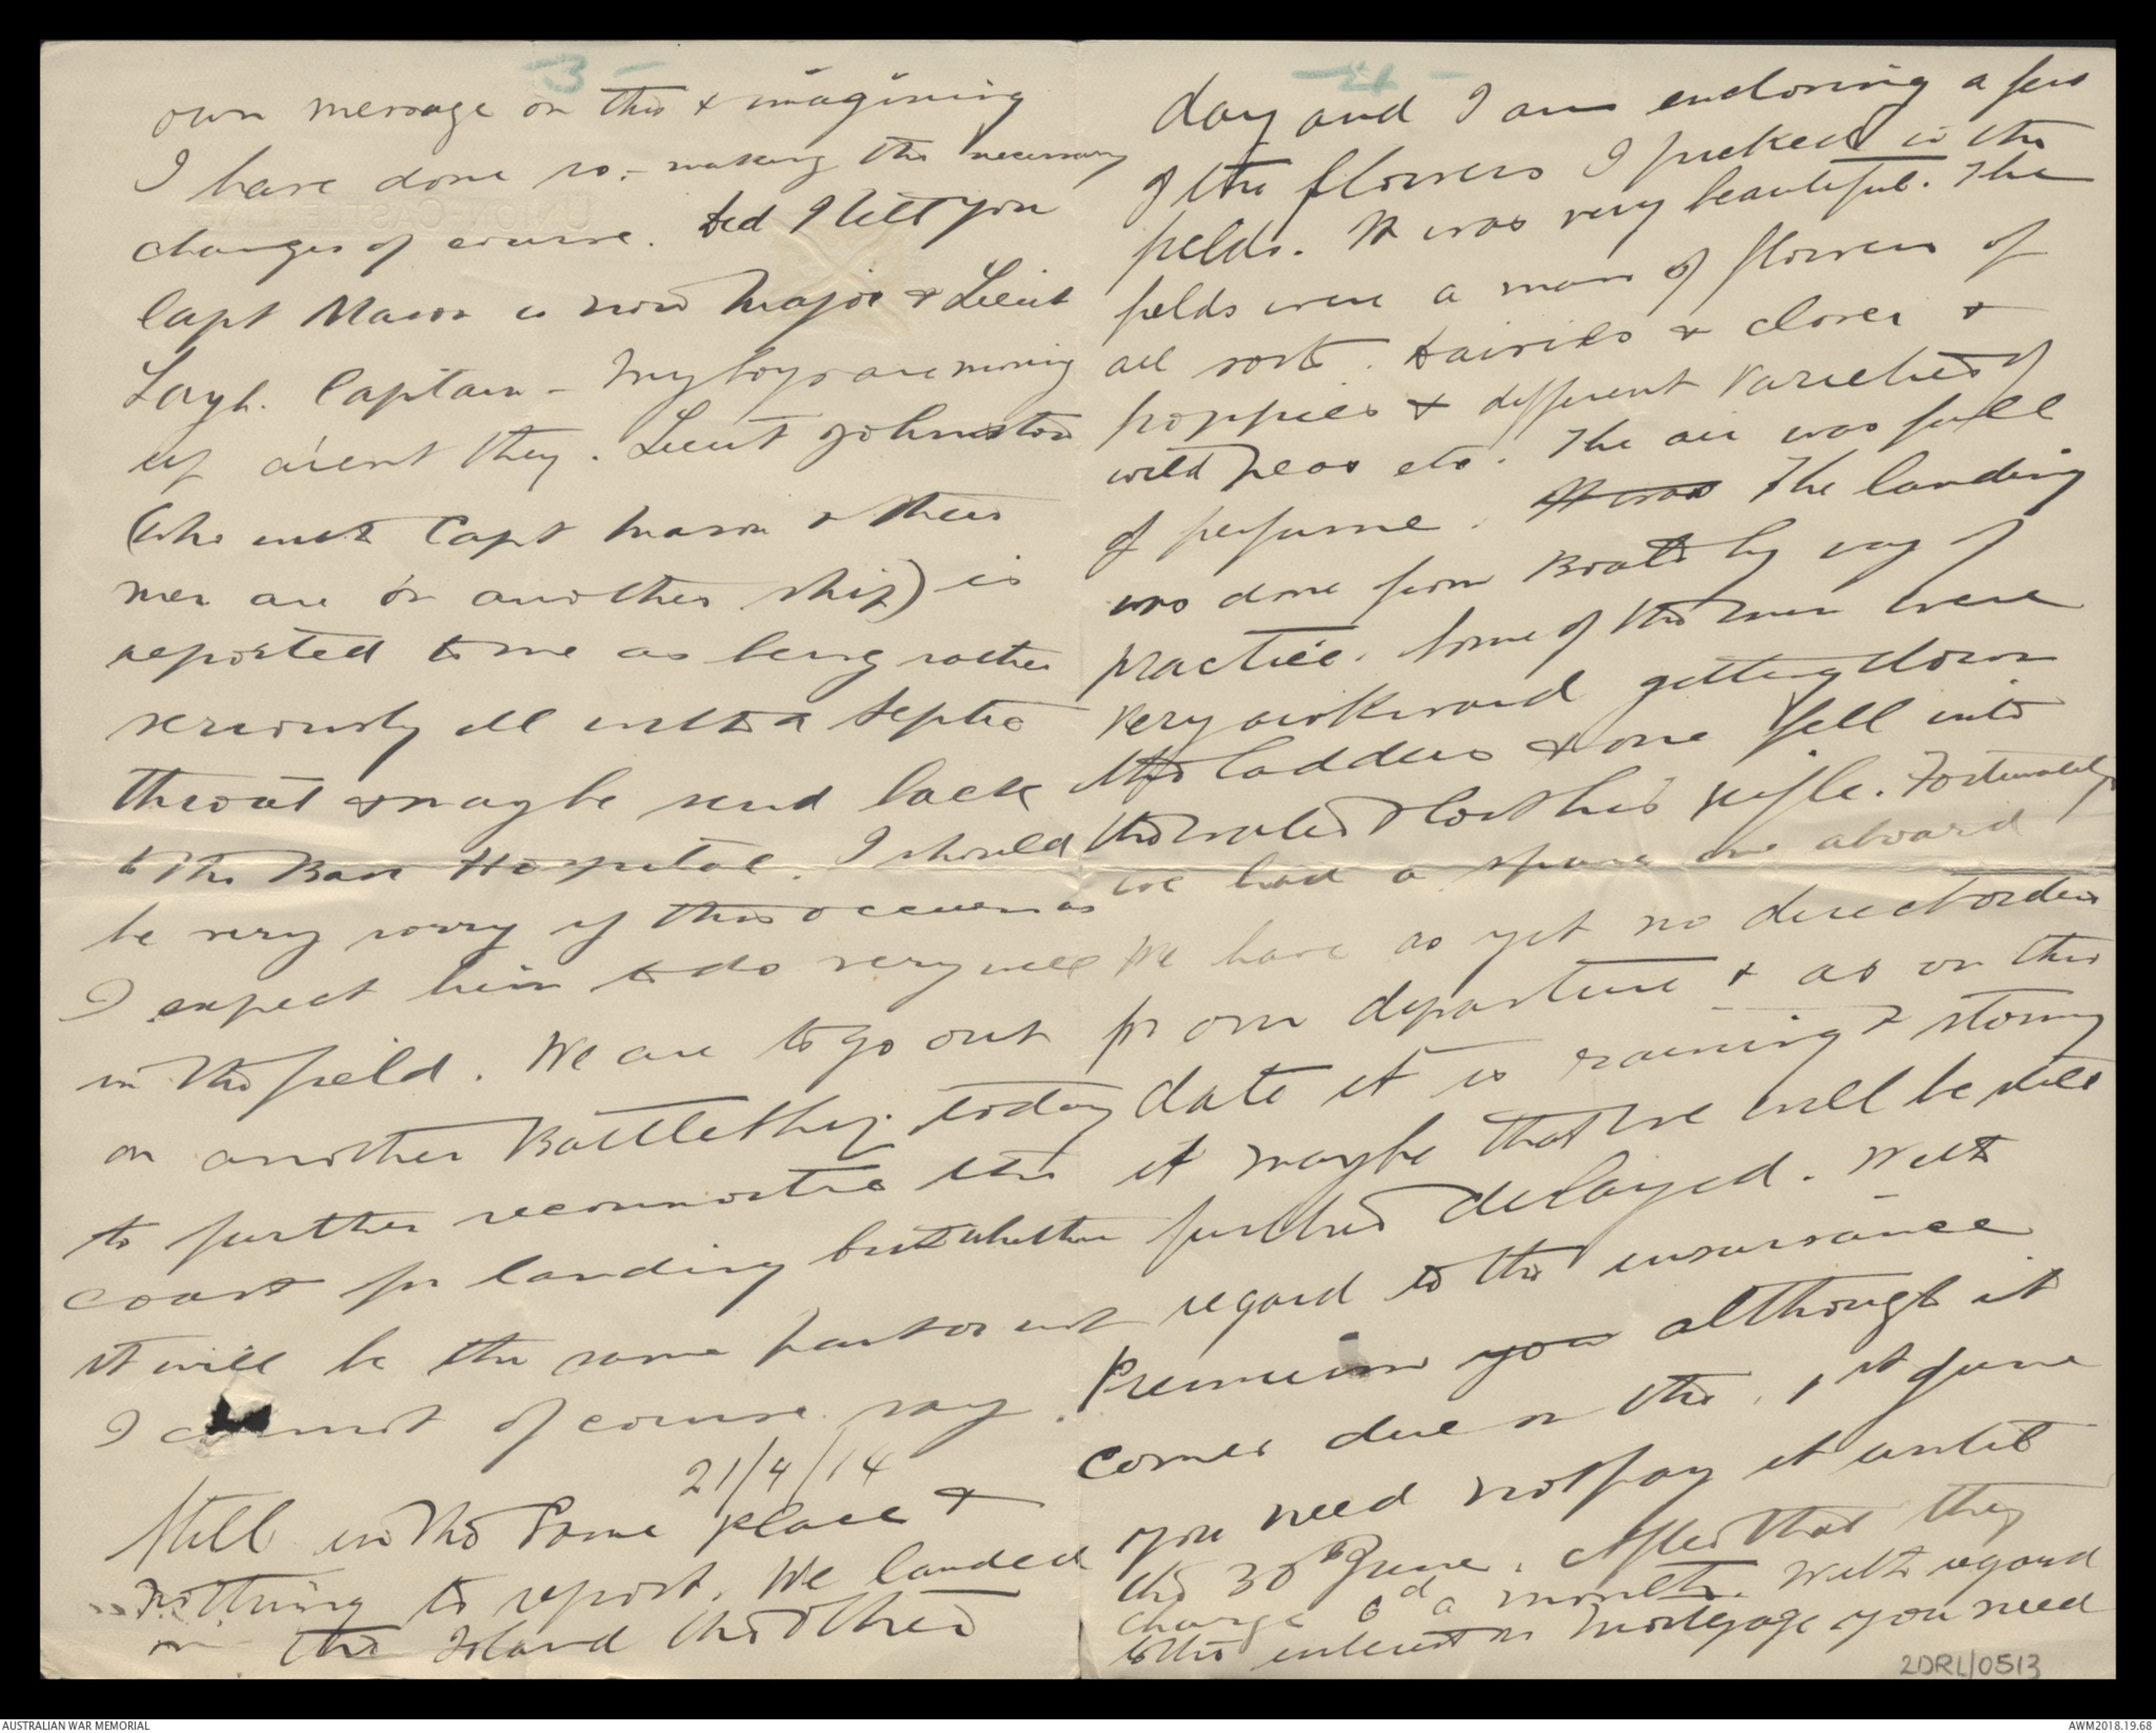 - 3 -
own message on this & imagining
I have done so, - making the necessary
changes of course. Did I tell you
Capt Mason is now Major & Lieut
Captain - My boys are moving
up aient they. Lieut Johnston
(who with Capt Mason & their
men are on another ship) is
reported to me as being rather
seriously ill with a septic
throat & may be send back
to the Base Hospital. I should
be very sorry if this occurs as
I expect him to do very well
in the field. We are to go out
on another Battleship today
to further reconnoitre the
coast for landing but whether
it will be the same part or not
I cannot of course say.
21/4/14
Still in the Same place &
nothing to report. We landed
on the Island the other
- 4 -
day and I am enclosing a few
of the flowers I picked in the
fields. It was very beautiful. The
fields were a mass of flowers of
all sorts. Dairies & clover &
poppies & different varieties of
wild peas etc. The air was full
of perfume. It was The landing
was done from Boats by way of
practice. Some of the men were
very awkward getting down
the ladders & one fell into
the water & lost his rifle. Fortunately
we had a spare one aboard
We have as yet no direct orders
for our departure & as on this
date it is raining & stormy
it maybe that we will be still
further delayed. With
regard to the insurance
Premium you although it
comes due on the 1st June
you need not pay it until
the 30th June. After that they
charge 6d a month. With regard
to the interest on Mortgage you need
2DRL/0513
AUSTRALIAN WAR MEMORIAL
AWM2018.19.68